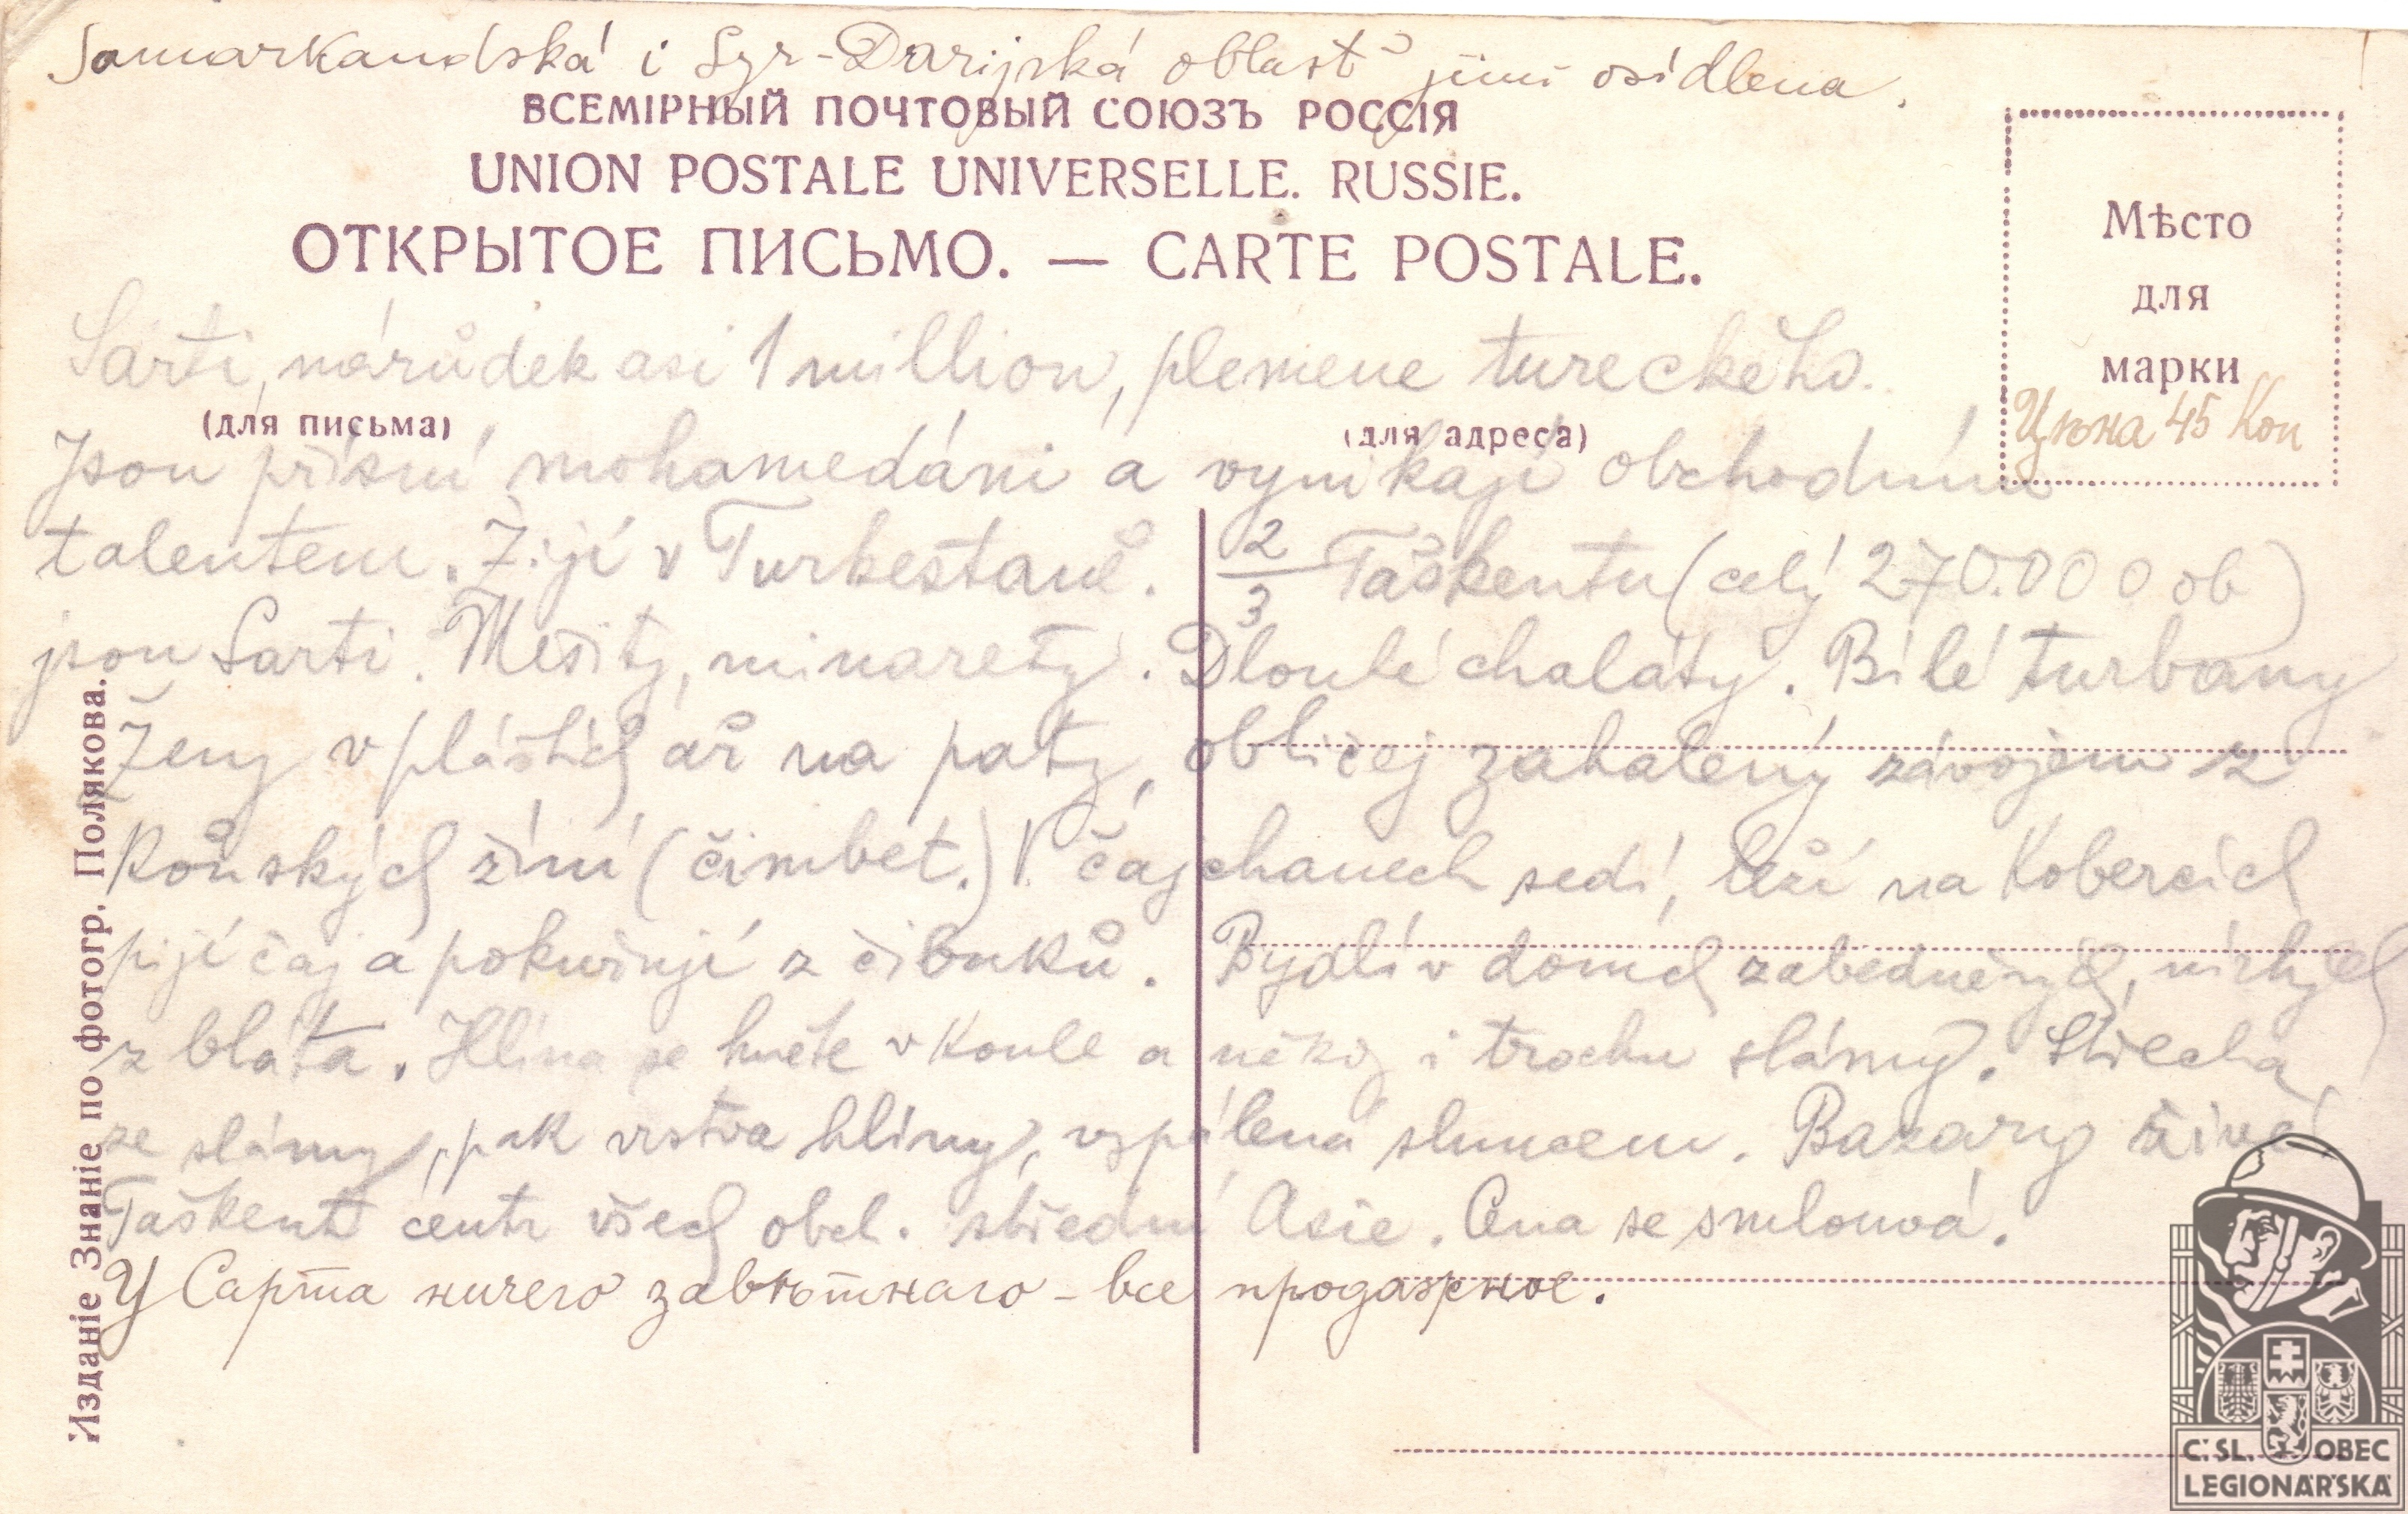 Samarkandská i Syr-Darijská oblasť jimi osídlena.
ВСЕМІРНЫЙ ПОЧТОВЫЙ СОЮЗЪ РОССІЯ
UNION POSTALE UNIVERSELLE. RUSSIE.
ОТКРЫТОЕ ПИСЬМО. — CARTE POSTALE.
Мѣсто
для
марки
Цѣна 45 Коп
Sarti, národek asi 1 million, plemene tureckého.
(для письма)
(для адреса)
Jsou přísní mohamedáni a vynikají obchodním
talentem. Žijí v Turkestaně. 2/3 Taškentu (celý 270.000 ob)
jsou Sarti. Mešity, minarety. Dlouhé chaláty. Bílé turbany
Ženy v pláštích až na paty, obličej zahalený závojem z
koňských žíní (čimbet.) V čajchanech sedí, leží na kobercích
pijí čaj a pokuřují z čibuků. Bydlí v domech zabedněných, nízkých
z bláta. Hlína se hněte v koule a někdy i trochu slámy. Střecha
ze slámy, pak vrstva hlíny, vypálená sluncem. Bazary živé
Taškent centr všech obch. střední Asie. Cena se smlouvá.
У Сарта ничего завѣтнаго - все продажное.
Изданіе Знаніе по фотогр. Полякова.
Č. SL. OBEC
LEGIONÁŘSKÁ